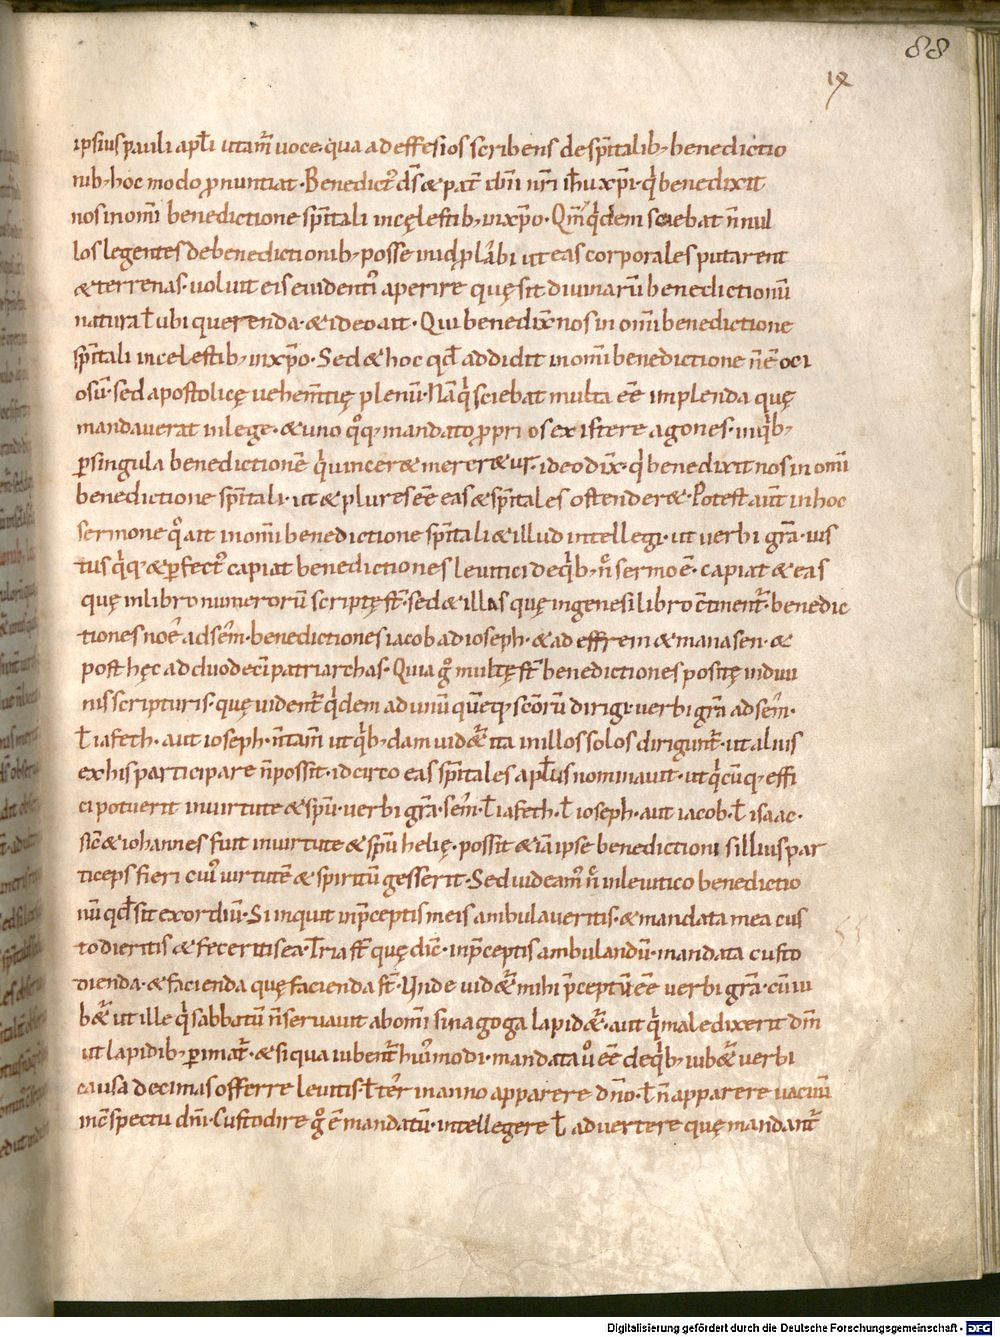 88
ipsius pauli apłi utam̅ uoce qua ad effesios scribens de sp̅italib; benedictio
nib; hoc modo p̱nuntiat. Benedict᷒ d̅s & pat̅ dn̅i nr̅i ih̅u xp̅i. q̍ benedixit
nos in om̅i benedictione sp̅itali in cęlestib; in xp̅o. Qm̅ q̍dem sciebat n̅nul
los legentes de benedictionib; posse in id p̱labi ut eas corporales putarent
& terrenas. uoluit eis euidenti᷒ aperire quę sit diuinarū benedictionū
natura ł ubi querenda. & ideo ait. Qui benedix̅ nos in om̅i benedictione
sp̅itali in celestib; in xp̅o. Sed & hoc qđ addidit in om̅i benedictione n̅ ē oci
osū. sed apostolicę uehem̅tię plenū. Nā q̍ sciebat multa ēē implenda quę
mandauerat in lege. & uno q̊q; mandato p̱prios existere agones. in q̍b;
ꝑ singula benedictionē q̍ uincer& merer&ur. ideo dix̅. q̍ benedixit nos in om̅i
benedictione sp̅itali. ut & plures ēē eas & sp̅itales ostender&. Potest aut̅ in hoc
sermone q̊ ait in om̅i benedictione sp̅itali & illud intellegi. ut uerbi gr̅a. ius
tus q̍q; & ꝑfect᷒ capiat benedictiones leuitici de q̍b; n̊ sermo ē. capiat & eas
quę in libro numerorū scriptę st̅. sed & illas quę in genesi libro c̅tinent᷒. benedic
tiones noe ad sem. benedictiones iacob ad ioseph. & ad effrem & manasen. &
post hęc ad duodeci̅ patriarchas. Quia g̊ multę st̅ benedictiones positę in diui
nis scripturis. quę uident᷒ q̍dem ad unū quēq; sc̅orū dirigi. uerbi gr̅a ad sem.
ł iafeth. aut ioseph. n̅ tam̅ ut q̍b;dam uid&᷒ ita in illos solos dirigunt᷒. ut alius
ex his participare n̅ possit. idcirco eas sp̅itales apłus nominauit. ut q̍cūq; effi
ci potuerit in uirtute & sp̅u. uerbi gr̅a. sem. ł iafeth. ł ioseph. aut iacob. ł isaac.
sic̅ & iohannes fuit in uirtute & sp̅u helię. possit & iā ipse benedictionis illius par
ticeps fieri cui᷒ uirtutē & spiritū gesserit. Sed uideam᷒ n̊ in leuitico benedictio
nū qđ sit exordiū. Si inquit in p̅ceptis meis ambulaueritis. & mandata mea cus
todieritis & feceritis ea. Tria st̅ quę dic̅. in p̅ceptis ambulandū. mandata custo
dienda. & facienda quę facienda st̅. Unde uid&᷒ mihi p̅ceptū ēē uerbi gr̅a. cū iu
b&᷒ ut ille q̍ sabbatū n̅ seruauit ab om̅i sinagoga lapid&᷒. aut q̍ maledixerit dn̅m
ut lapidib; ꝑimat᷒. & siqua iubent᷒ hui᷒modi. mandata ů ēē de q̍b; iub&᷒ uerbi
causa decimas offerre leuitis. ł ter in anno apparere dn̅o. ł n̅ apparere uacuū
in c̅spectu dn̅i. Custodire g̊ ē mandatū. intellegere ł aduertere quę mandant᷒
Digitalisierung gefördert durch die Deutsche Forschungsgemeinschaft - DFG